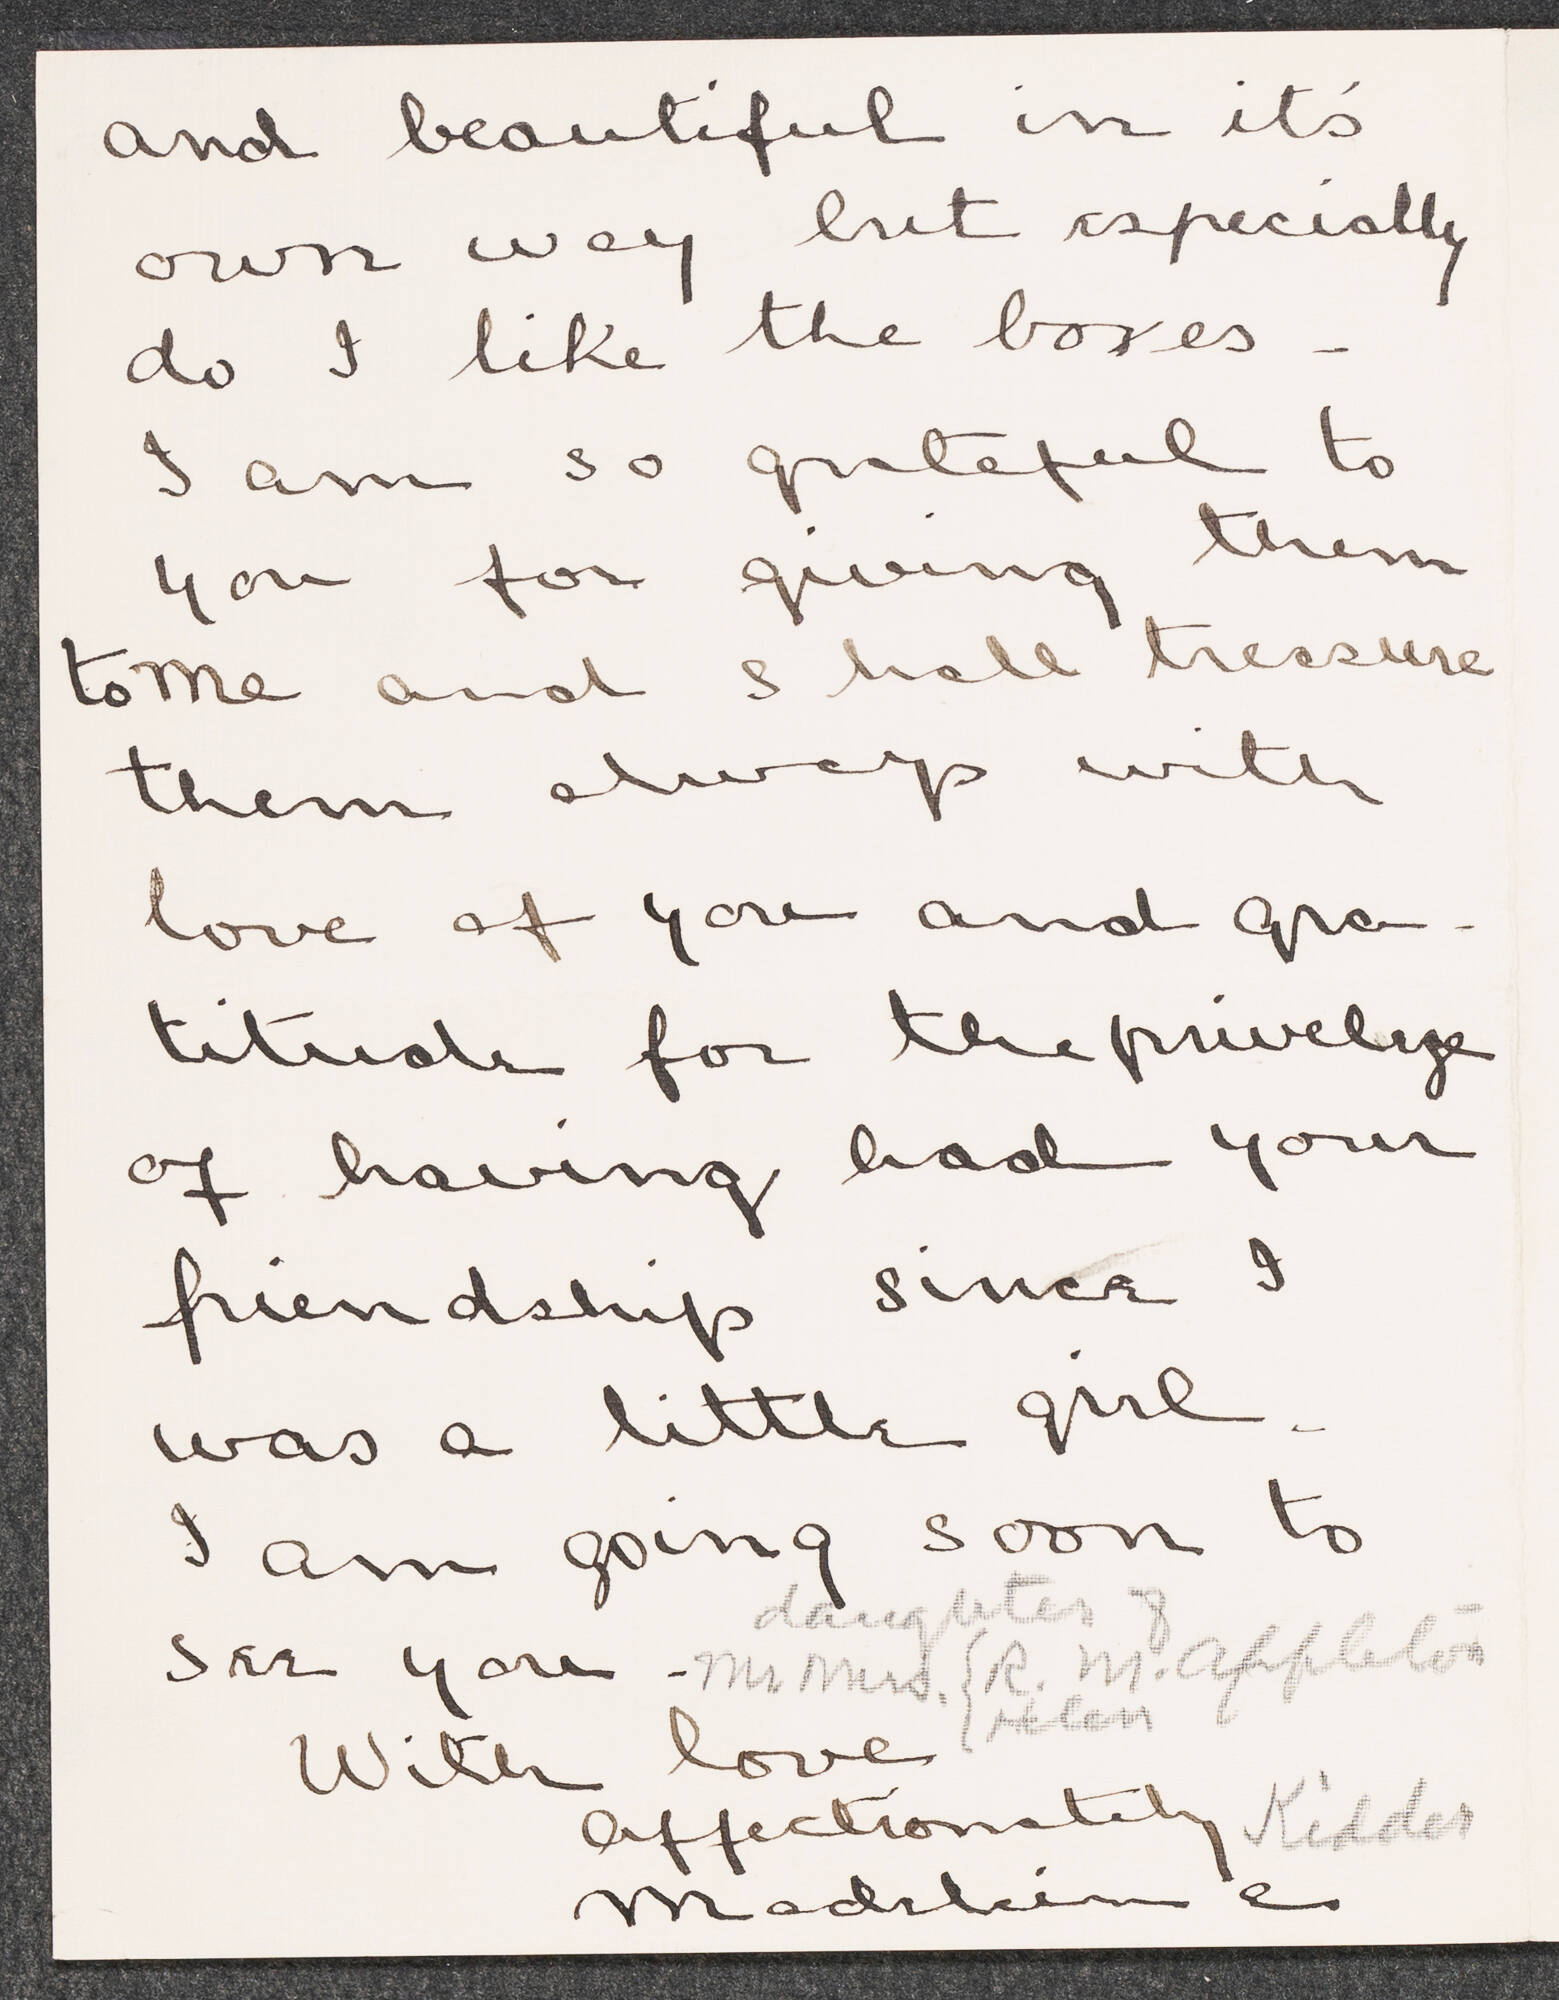 and beautiful in it's
own way but especially
do I like the boxes -
I am so grateful to
you for giving them
to me and shall treasure
them always with
love of you and gra-
titude for the privelege
of having had your
friendship since I
was a little girl -
I am going soon to
daughter of
see you - Mr Mrs. { R. M. Appleton
Helen
With love
affectionately Kidder
Madeleine